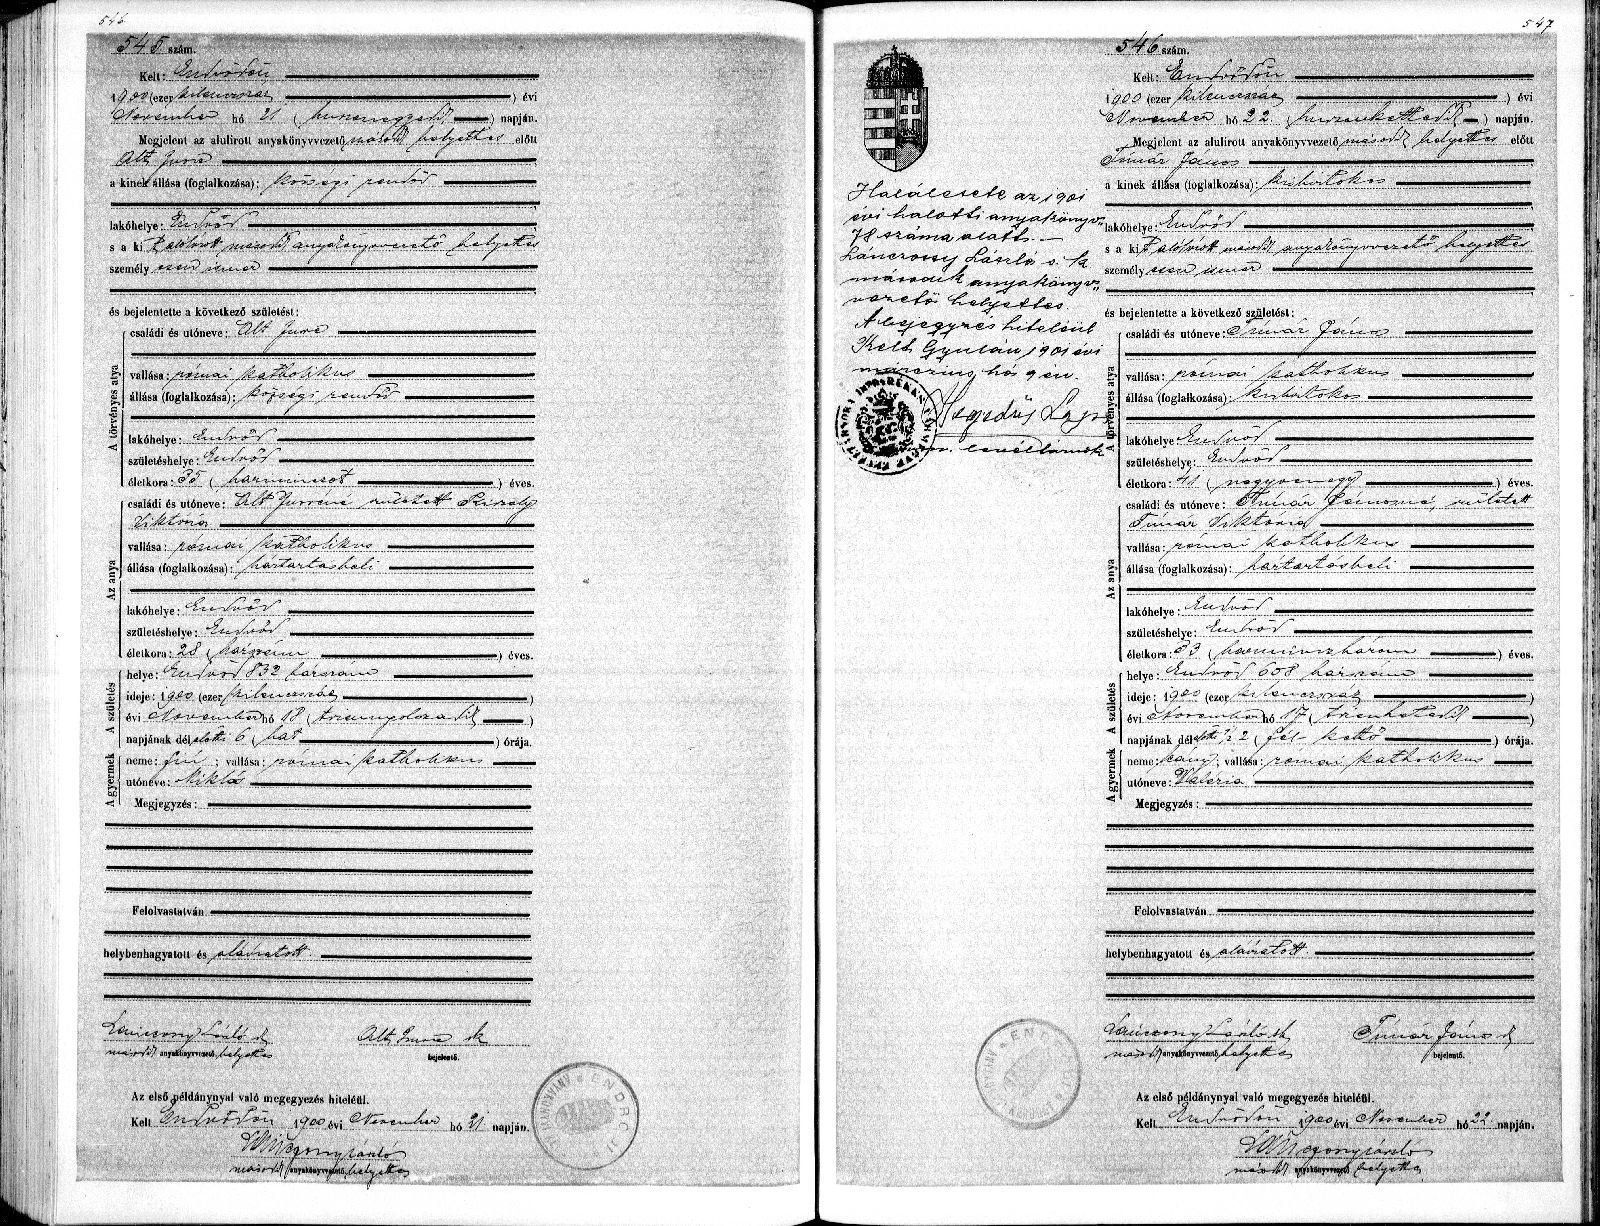 546
545 szám.
Kelt: Endrődön
1900 (ezer kilenczszáz) évi
November hó 21 (huszonegyedik) napján.
Megjelent az alulirott anyakönyvvezető második helyettes előtt
Alt Imre
a kinek állása (foglalkozása): községi rendőr
lakóhelye: Endrőd
s a kit alólirott második anyakönyvvezető helyettes
személyesen ismer
és bejelentette a következő születést:
A törvényes atya
családi és utóneve: Alt Imre
vallása: római katholikus
állása (foglalkozása): községi rendőr
lakóhelye: Endrőd
születéshelye: Endrőd
életkora: 35 (harminczöt) éves.
Az anya
családi és utóneve: Alt Imréné született
Viktória
vallása: római katholikus
állása (foglalkozása): háztartásbeli
lakóhelye: Endrőd
születéshelye: Endrőd
életkora: 28 () éves.
A születés
helye: Endrőd 832 házszám
ideje: 1900 (ezer kilenczszáz)
évi November hó 18 (tizennyolczadik)
napjának délelőtti 6 (hat) órája.
A gyermek
neme: fiú; vallása: római katholikus
utóneve: Miklós
Megjegyzés:
Felolvastatván
helybenhagyatott és aláiratott.
László sk
második anyakönyvvezető helyettes
Alt Imre sk
bejelentő.
Az első példánynyal való megegyezés hiteléül.
Kelt Endrődön 1900 évi November hó 21 napján.
második anyakönyvvezető helyettes
547
Halálesete az 1901
évi halotti anyakönyv
78 száma alatt.—
László s. k
második anyakönyv
vezető helyettes
A bejegyzés hiteléül
Kelt Gyulán, 1901 évi
marczius hó 9 én.
Hegedűs Lajos
levéltárnok
546 szám.
Kelt: Endrődön
1900 (ezer kilenczszáz) évi
November hó 22 (huszonkettedik) napján.
Megjelent az alulirott anyakönyvvezető második helyettes előtt
Timár János
a kinek állása (foglalkozása): kisbirtokos
lakóhelye: Endrőd
s a kit alólirott második anyakönyvvezető helyettes
személyesen ismer
és bejelentette a következő születést:
A törvényes atya
családi és utóneve: Timár János
vallása: római katholikus
állása (foglalkozása): kisbirtokos
lakóhelye: Endrőd
születéshelye: Endrőd
életkora: 41 (negyvenegy) éves.
Az anya
családi és utóneve: Timár Jánosné, született
Timár Viktória
vallása: római katholikus
állása (foglalkozása): háztartásbeli
lakóhelye: Endrőd
születéshelye: Endrőd
életkora: 33 (harminczhárom) éves.
A születés
helye: Endrőd 658 házszám
ideje: 1900 (ezer kilenczszáz)
évi November hó 17 (tizenhetedik)
napjának délelőtti ½ 2 (fél kettő) órája.
A gyermek
neme: leány; vallása: római katholikus
utóneve: Valéria
Megjegyzés:
Felolvastatván
helybenhagyatott és aláiratott.
László sk
második anyakönyvvezető helyettes
Timár János sk
bejelentő.
Az első példánynyal való megegyezés hiteléül.
Kelt Endrődön 1900 évi November hó 22 napján.
második anyakönyvvezető helyettes